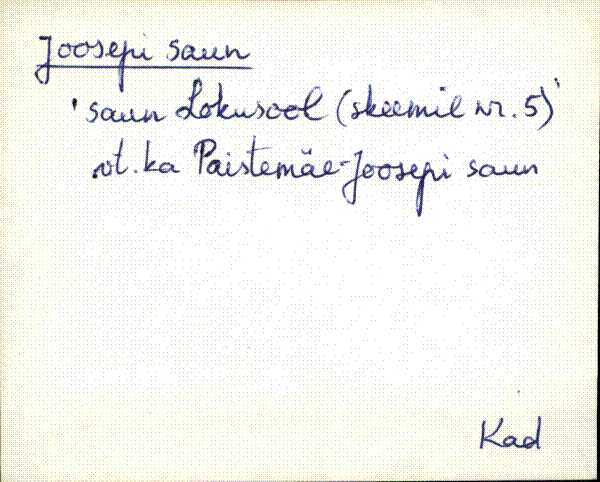 Joosepi saun
'saun Lokusool (skeemil nr. 5)'
vt. ka Paistemäe-Joosepi saun
Kad